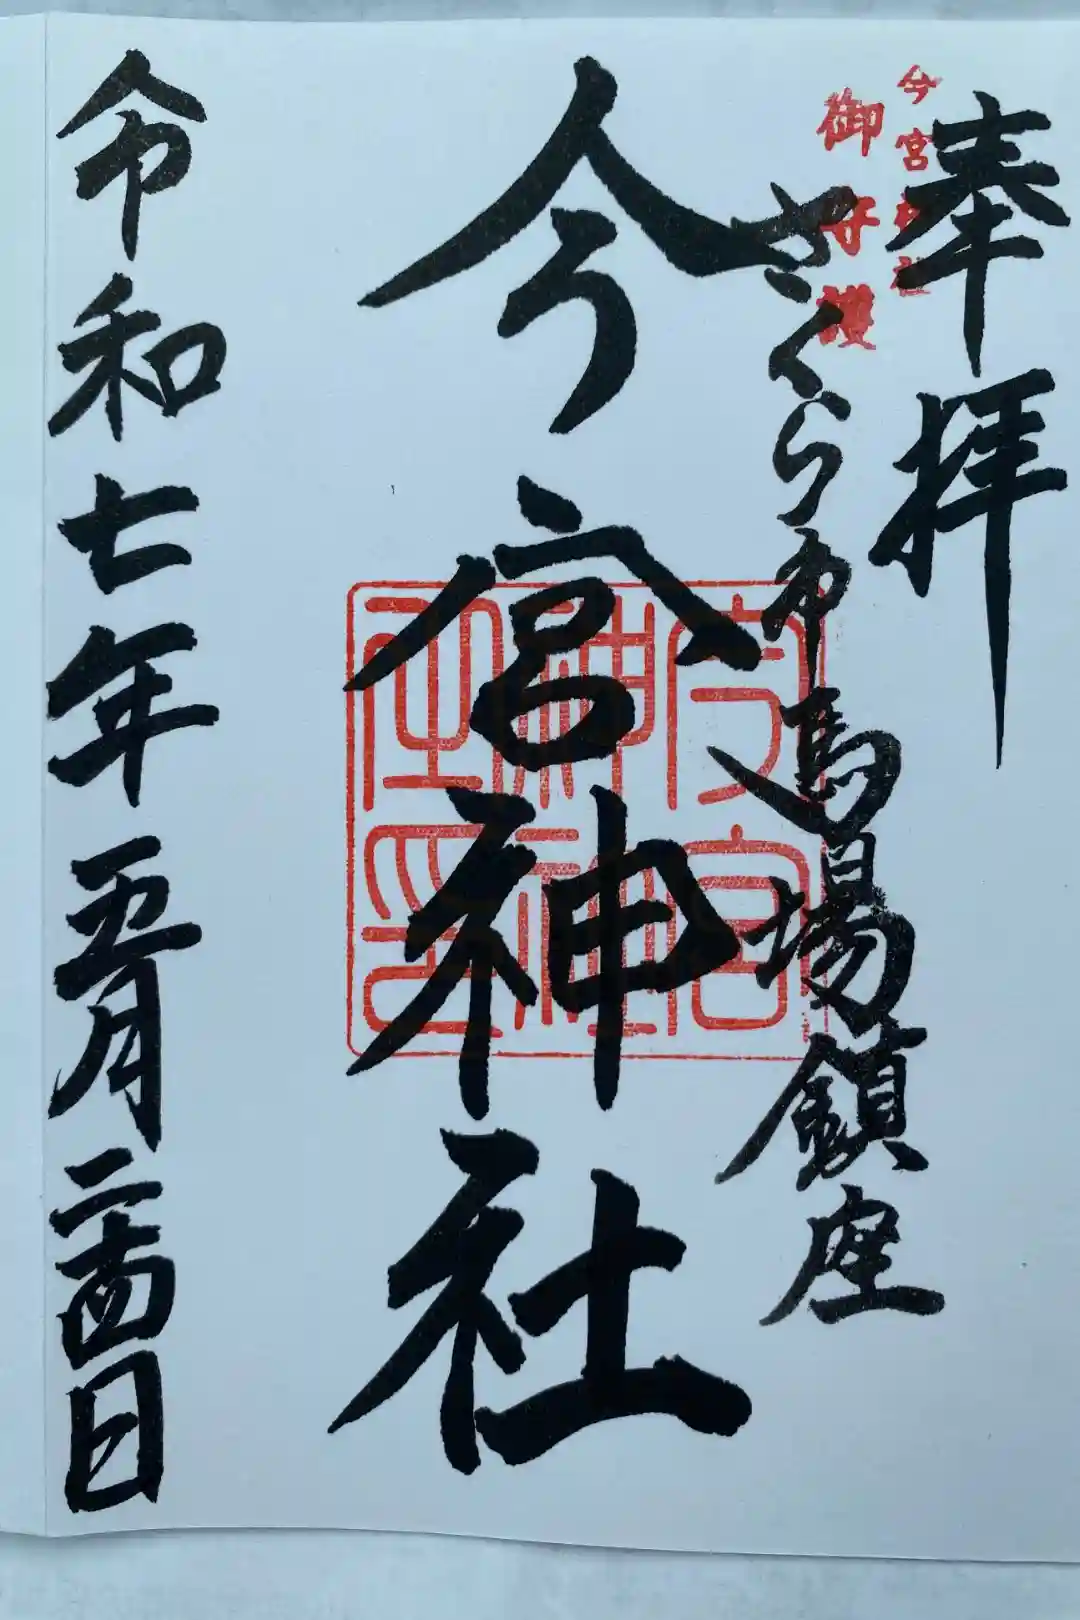 奉拝
今宮神社
御守護
さくら市馬場鎮座
今宮神社
今宮
神社
座印
令和七年五月二十四日